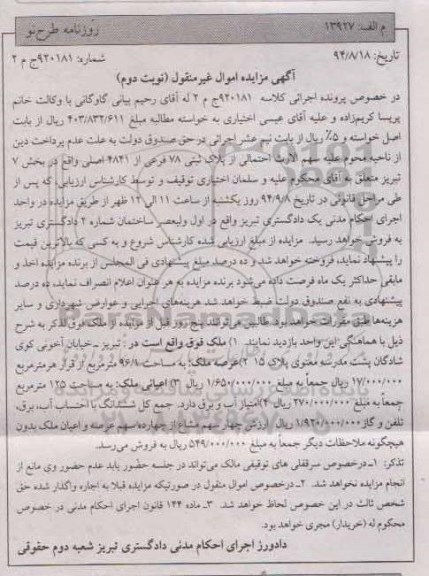 م الف: ۱۳۹۲۷
روزنامه طرح نو
تاریخ: ۹۴/۸/۱۸
شماره: ۹۲۰۱۸۱ج م ۲
آگهی مزایده اموال غیرمنقول (نوبت دوم)
در خصوص پرونده اجرائی کلاسه ۹۲۰۱۸۱ ج م ۲ له آقای رحیم بیانی گاوگانی با وکالت خانم
پریسا کریم‌زاده و علیه آقای عیسی اختیاری به خواسته مطالبه مبلغ ۴۰۳/۸۳۲/۶۱۱ ریال از بابت
اصل خواسته و ۵٪ ریال از بابت نیم عشر اجرائی در حق صندوق دولت به علت عدم پرداخت دین
از ناحیه محوم علیه سهم الارث احتمالی از پلاک ثبتی ۷۸ فرعی از ۴۸۴۱ اصلی واقع در بخش ۷
تبریز متعلق به آقای محکوم علیه و سلمان اختیاری توقیف و توسط کارشناس ارزیابی، که پس از
طی مراحل قانونی در تاریخ ۹۴/۹/۸ روز یکشنبه از ساعت ۱۱ الی ۱۲ ظهر از طریق مزایده در واحد
اجرای احکام مدنی یک دادگستری تبریز واقع در اول ولیعصر ساختمان شماره ۲ دادگستری تبریز
به فروش خواهد رسید. مزایده از مبلغ ارزیابی شده کارشناس شروع و به کسی که بالاترین قیمت
را پیشنهاد نماید، فروخته خواهد شد و ده درصد مبلغ پیشنهادی فی المجلس از برنده مزایده اخذ و
مابقی حداکثر یک ماه فرصت داده می‌شود برنده مزایده به هر عنوان اعلام انصراف نماید، ده درصد
پیشنهادی به نفع صندوق دولت ضبط خواهد شد هزینه‌های اجرایی و عوارض شهرداری و سایر
هزینه‌ها طبق مقررات خواهد بود. طالبین می‌توانند پنج روز قبل از مزایده از ملک فوق الذکر به شرح
ذیل با هماهنگی این واحد بازدید نمایند. ۱) ملک فوق واقع است در : تبریز ـ خیابان آخونی کوی
شادگان پشت مدرسه معنوی پلاک ۱۵ ۲)عرصه ملک: به مساحت ۹۶/۹ مترمربع از قرار هرمترمربع
۱۷/۰۰۰/۰۰۰ ریال جمعاً به مبلغ ۱/۶۵۰/۰۰۰/۰۰۰ ریال ۳) اعیانی ملک: به مساحت ۱۲۵ مترمربع
جمعاً به مبلغ ۲۷۰/۰۰۰/۰۰۰ ریال ۴)امتیاز آب و برق دارد. جمع کل ششدانگ با احتساب آب، برق،
تلفن و گاز ۱/۹۲۰/۰۰۰/۰۰۰ ریال ارزش چهار سهم مشاع از چهارده سهم عرصه و اعیان ملک بدون
هیچگونه ملاحظات دیگر جمعاً به مبلغ ۵۴۹/۰۰۰/۰۰۰ ریال به فروش می‌رسد.
تذکر: ۱ـ درخصوص سرقفلی های توقیفی مالک می‌تواند در جلسه حضور یابد عدم حضور وی مانع از
انجام مزایده نخواهد شد. ۲ـ درخصوص اموال منقول در صورتیکه مزایده قبلا به اجاره واگذار شده حق
شخص ثالث در این خصوص لحاظ خواهد شد. ۳ـ ماده ۱۴۴ قانون اجرای احکام مدنی در خصوص
محکوم له (خریدار) مجری خواهد بود.
دادورز اجرای احکام مدنی دادگستری تبریز شعبه دوم حقوقی
ParsNamadData